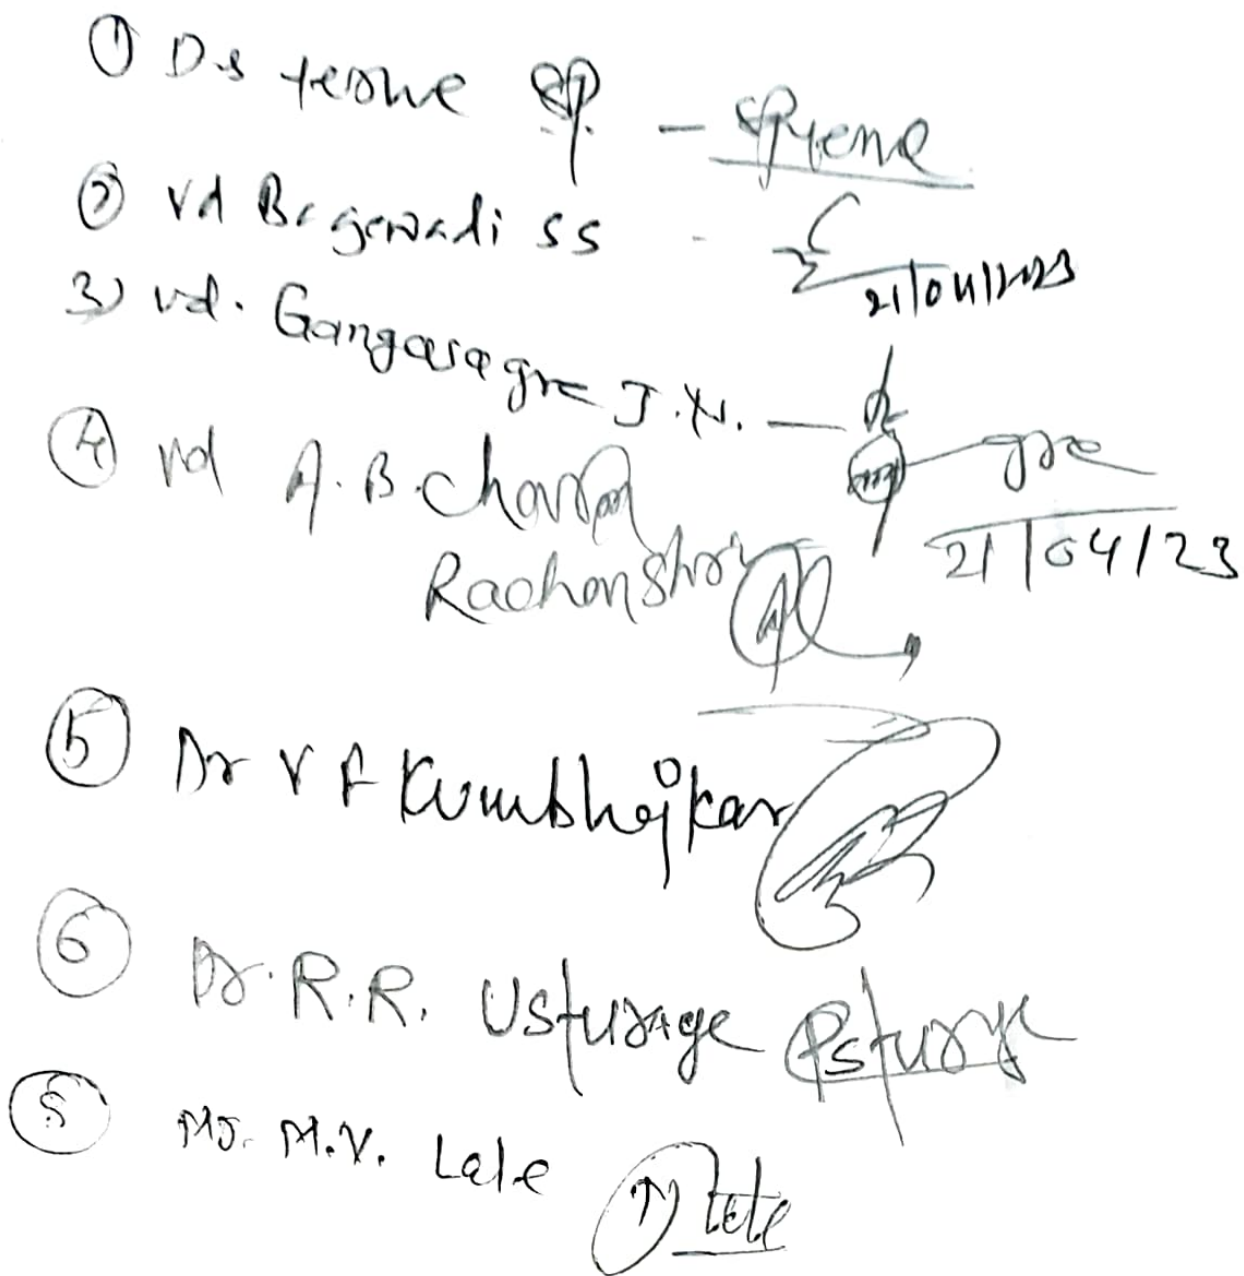 ① Dr terwe SP - SPterwe
② Vd Bagewadi SS - 21/04/2023
3) vd. Gangasagre J.N. - gre
21/04/23
④ Vd A.B. Chavan
Rachanshri
⑤ Dr V A Kumbhojkar
⑥ Dr. R.R. Usturage Rsturge
⑧ Mr. M.V. Lale Lale